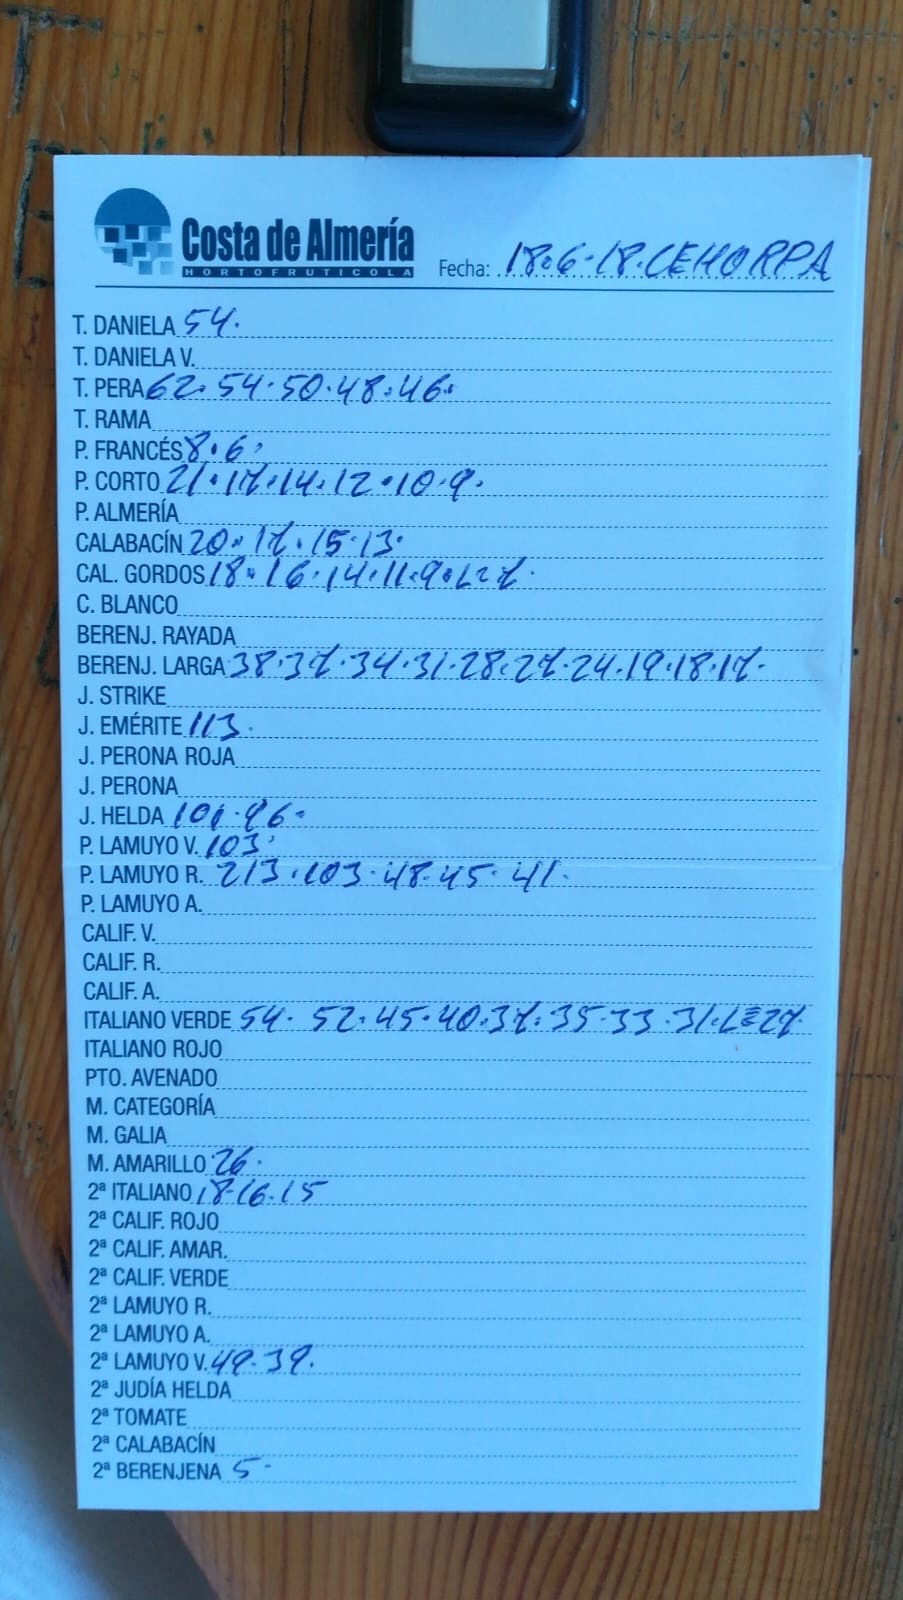 Costa de Almería
HORTOFRUTICOLA
Fecha: 18.6-18.CEHORPA
T. DANIELA 54.
T. DANIELA V.
T. PERA 62.54.50.48.46.
T. RAMA
P. FRANCÉS 8.6.
P. CORTO 21.17.14.12.10.9.
P. ALMERÍA
CALABACÍN 20.17.15.13.
CAL. GORDOS 18.16.14.11.9.L=7.
C. BLANCO
BERENJ. RAYADA
BERENJ. LARGA 38.37.34.31.28.27.24.19.18.17.
J. STRIKE
J. EMÉRITE 113.
J. PERONA ROJA
J. PERONA
J. HELDA 101.96.
P. LAMUYO V. 103.
P. LAMUYO R. 213.103.48.45.41.
P. LAMUYO A.
CALIF. V.
CALIF. R.
CALIF. A.
ITALIANO VERDE 54. 52.45.40.37.35.33.31.L=27.
ITALIANO ROJO
PTO. AVENADO
M. CATEGORÍA
M. GALIA
M. AMARILLO 26.
2ª ITALIANO 18-16.15
2ª CALIF. ROJO
2ª CALIF. AMAR.
2ª CALIF. VERDE
2ª LAMUYO R.
2ª LAMUYO A.
2ª LAMUYO V. 49.39.
2ª JUDÍA HELDA
2ª TOMATE
2ª CALABACÍN
2ª BERENJENA 5.